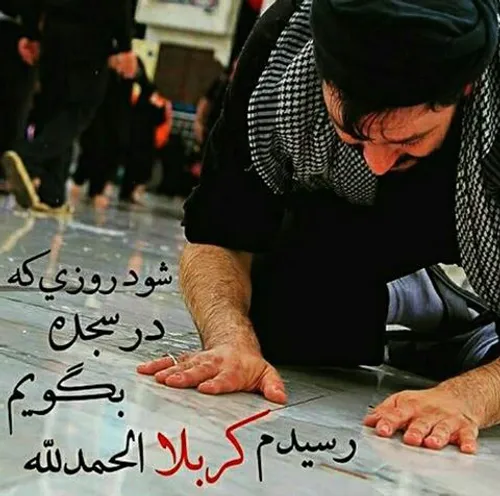 شود روزي که
در سجده
بگویم
رسیدم کربلا الحمدلله